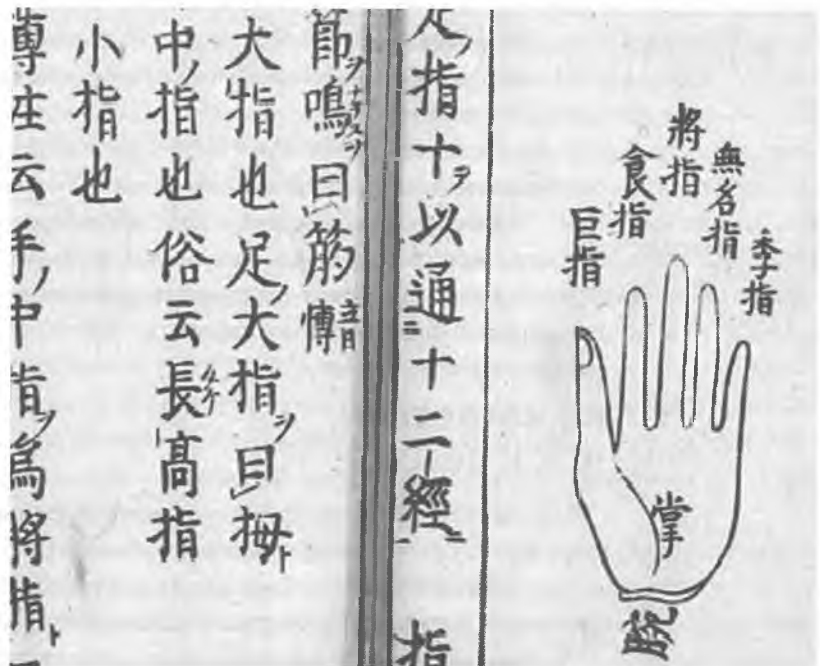 季指
無名指
將指
食指
巨指
掌
腕
指十ヲ以通十二經 指
節鳴曰筋慱音
大指也足ノ大指ヲ曰拇ト
中指也俗云長高指
小指也
云手ノ中指ヲ爲將指ト